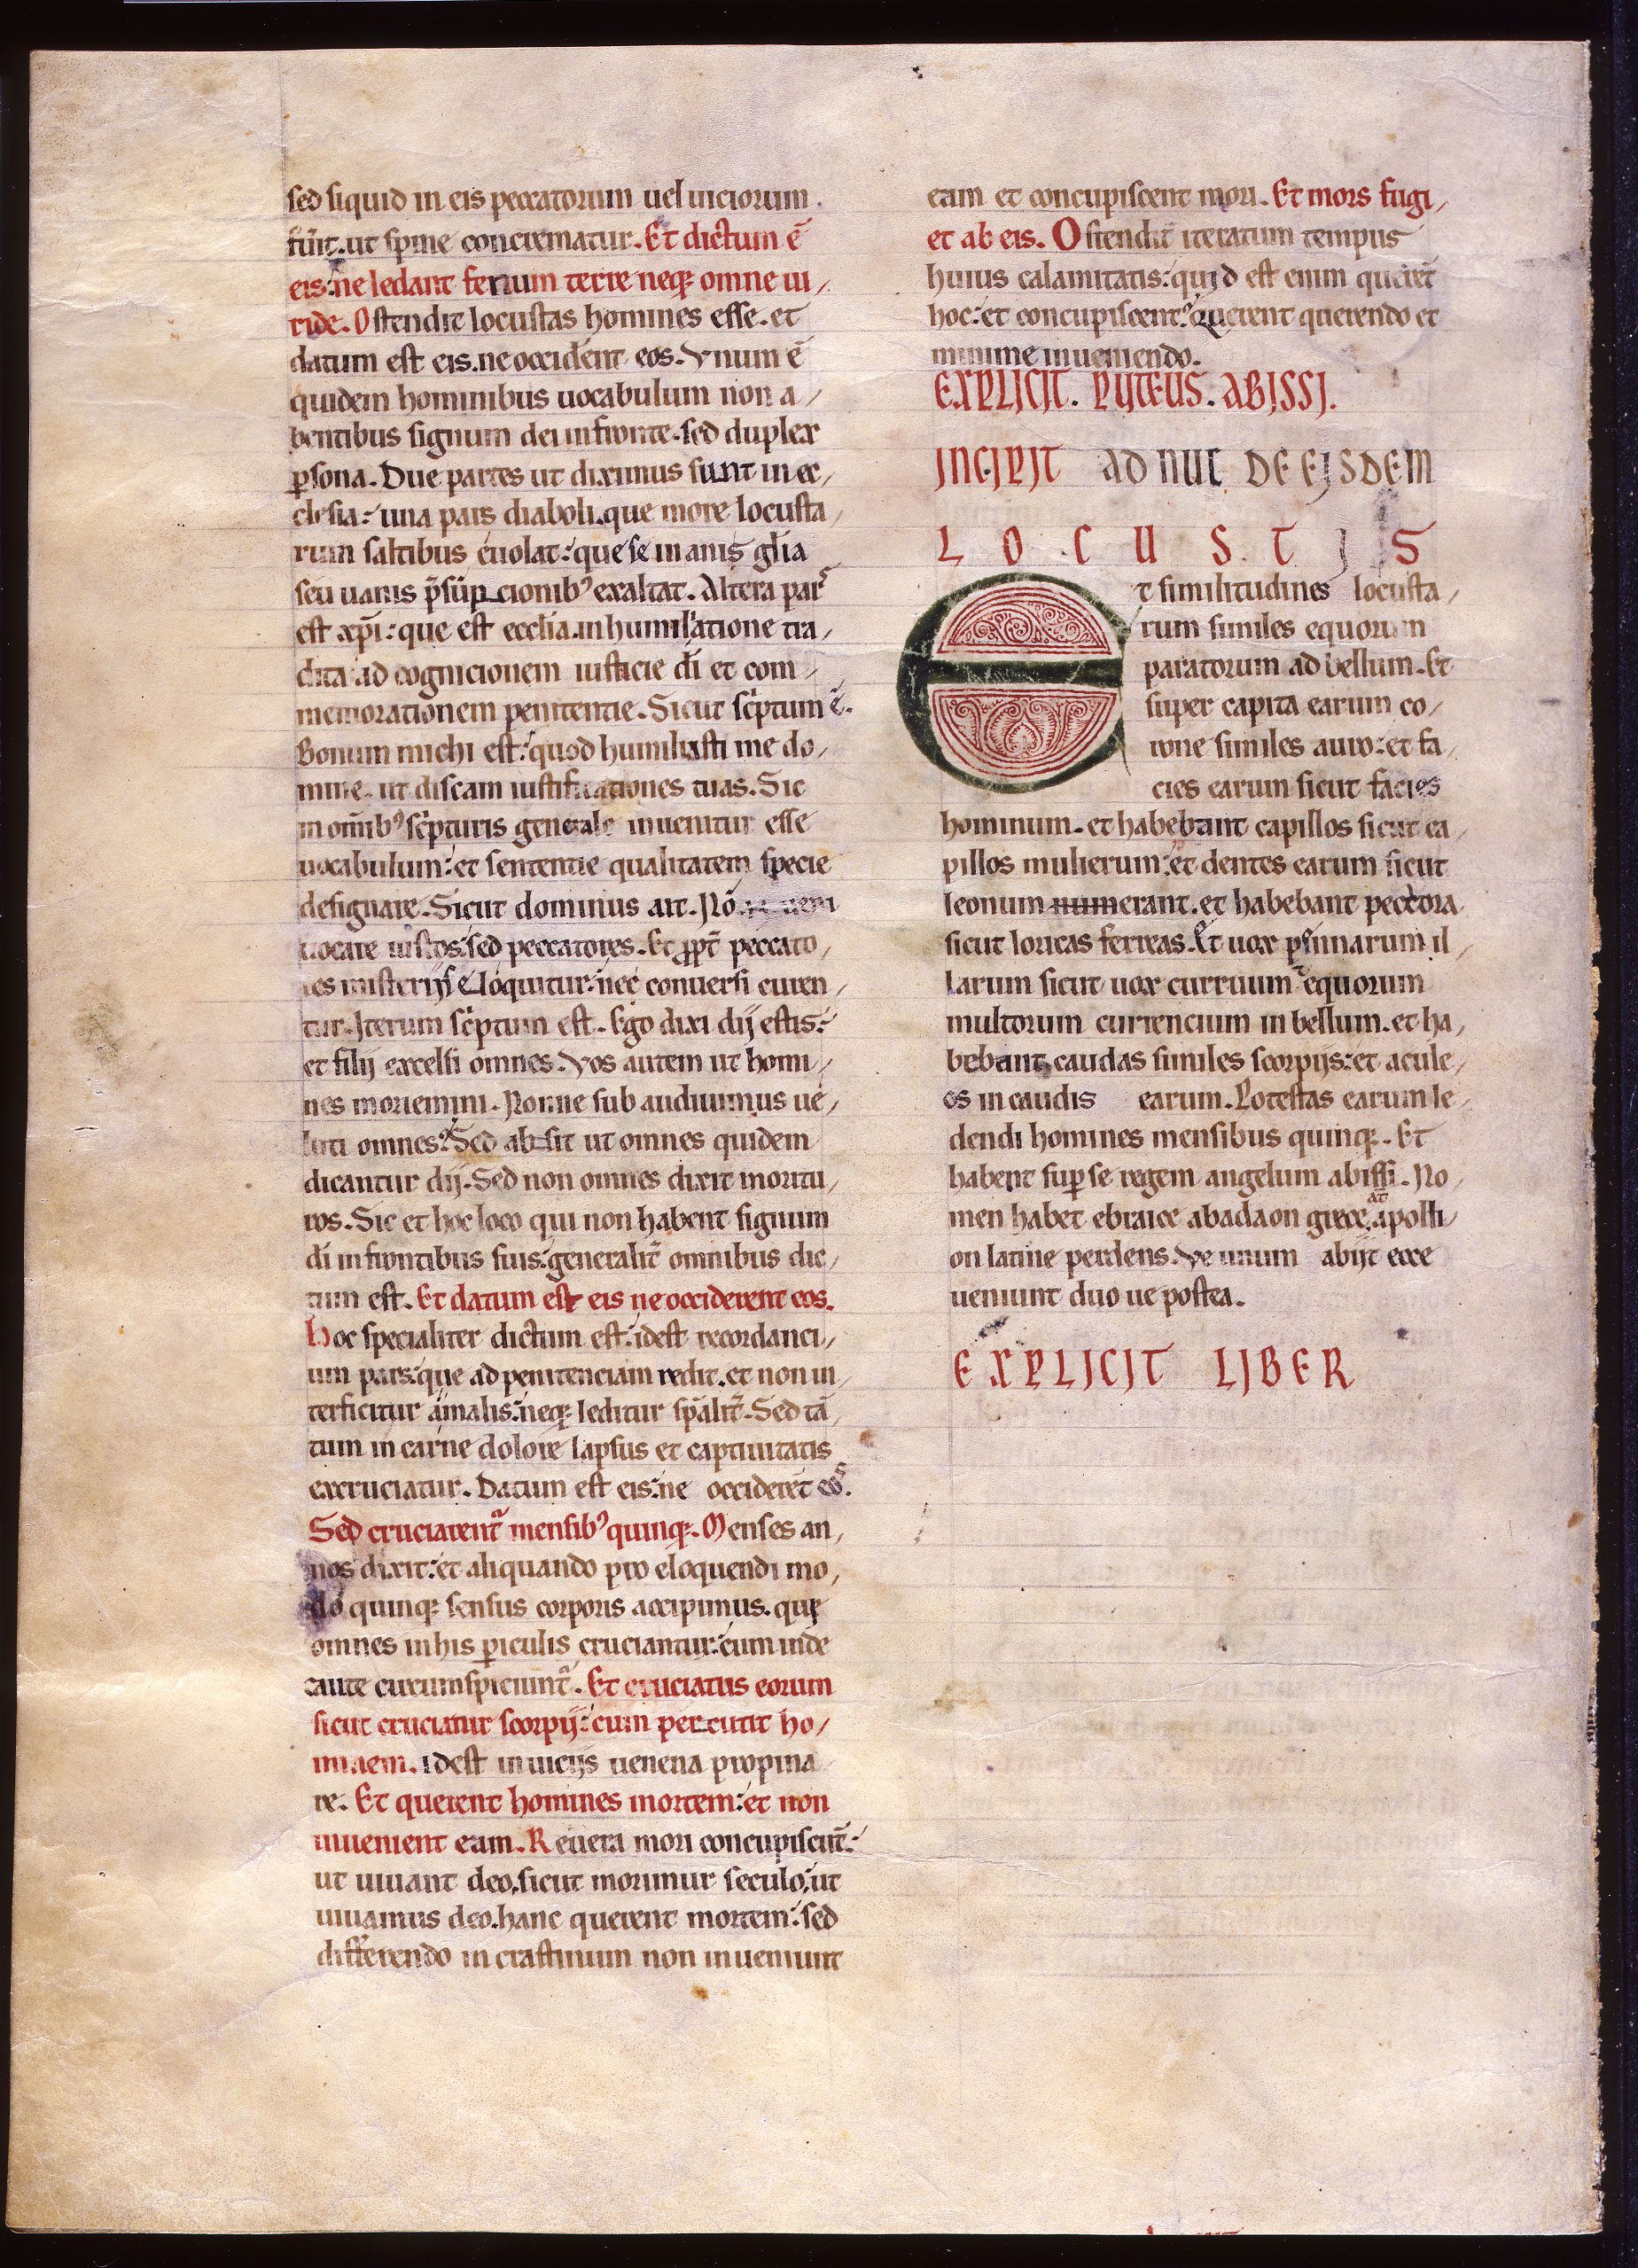 sed siquid in eis peccatorum uel uiciorum
fuĩt. ut spine concremarur. Et dictum ẽ
eis: ne ledant fenum terre neq; omne ui/
ride. Ostendit locustas homines esse. et
datum est eis. ne occident eos. Vnum ẽ
quidem hominibus uocabulum non a/
bentibus signum dei in fronte. sed duplex
p̱sona. Due partes ut diximus sunt in ec/
clesia: una pars diaboli. que more locusta/
rum saltibus euolat: que se inanis głia
seu uanis p̃súpcionibꝰ exaltat. Altera pars
est xp̃i: que est ecclĩa. in humiliatione tra/
dita ad cognicionem iusticie dĩ et com/
memorationem penitentie. Sicut sc̃ptum ẽ.
Bonum michi est: quod humiliasti me do/
mine. ut discam iustificationes tuas. Sic
in om̃ibꝰ sc̃pturis generale inuenitur esse
uocabulum: et sententie qualitatem specie
designare. Sicut dominus ait. Nõ ueni
uocare iustos: sed peccatores. Et ꝓpt̃ peccato/
res misterijs eloquitur: nec conuersi curen/
tur. Iterum sc̃ptum est. Ego dixi dij estis:
et filij excelsi omnes. Vos autem ut homi/
nes moriemini. Nonne sub audiuimus ue/
luti omnes? Sed absit ut omnes quidem
dicantur dij. Sed non omnes dixit moritu/
ros. Sic et hoc loco qui non habent signum
dĩ in frontibus suis: generalit̃ omnibus dic/
tum est. Et datum est eis ne occiderent eos.
Hoc specialiter dictum est: idest recordanci/
um pars: que ad penitenciam redit. et non in/
terficitur a malis: neq; leditur sp̃alit̃. Sed tã/
tum in carne dolore lapsus et captiuitatis
excruciatur. Datum est eis: ne occiderẽt eos.
Sed cruciarent᷑ mensibꝰ quinq;. Menses an/
nos dixit: et aliquando pro eloquendi mo/
do quinq; sensus corporis accipimus. que
omnes in his p̱iculis cruciantur: cum inde
caute circumspiciunt᷑. Et cruciatus eorum
sicut cruciatur scorpij: cum percutit ho/
minem. idest in uicijs uenena propina
re. Et querent homines mortem: et non
inuenient eam. Reuera mori concupiscũt:
ut uiuant deo. sicut morimur seculo: ut
uiuamus deo. hanc querent mortem: sed
differendo in crastinum non inueniunt
eam et concupiscent mori. Et mors fugi/
et ab eis. Ostendit̃ iteratum tempus
huius calamitatis: quid est enim querẽt
hoc: et concupiscent? Querent querendo et
minime inueniendo.
EXPLICIT. PUTEUS. ABISSI.
INCIPIT AD NUC DE EISDEM
LOCUSTIS
Et similitudines locusta/
rum similes equorum
paratorum ad bellum. Et
super capita earum co/
rone similes auro: et fa/
cies earum sicut facies
hominum. et habebant capillos sicut ca/
pillos mulierum: et dentes earum sicut
leonum numerant. et habebant pectora
sicut loricas ferreas. Et uox pennarum il/
larum sicut uox curruum equorum
multorum currencium in bellum. et ha/
bebant caudas similes scorpijs: et acule/
os in caudis earum. Potestas earum le/
dendi homines mensibus quinq;. Et
habent sup̱ se regem angelum abissi. No/
men habet ebraice abadaon grece. at apolli/
on latine perdens. Ve unum abijt ecce
ueniunt duo ue postea.
EXPLICIT LIBER